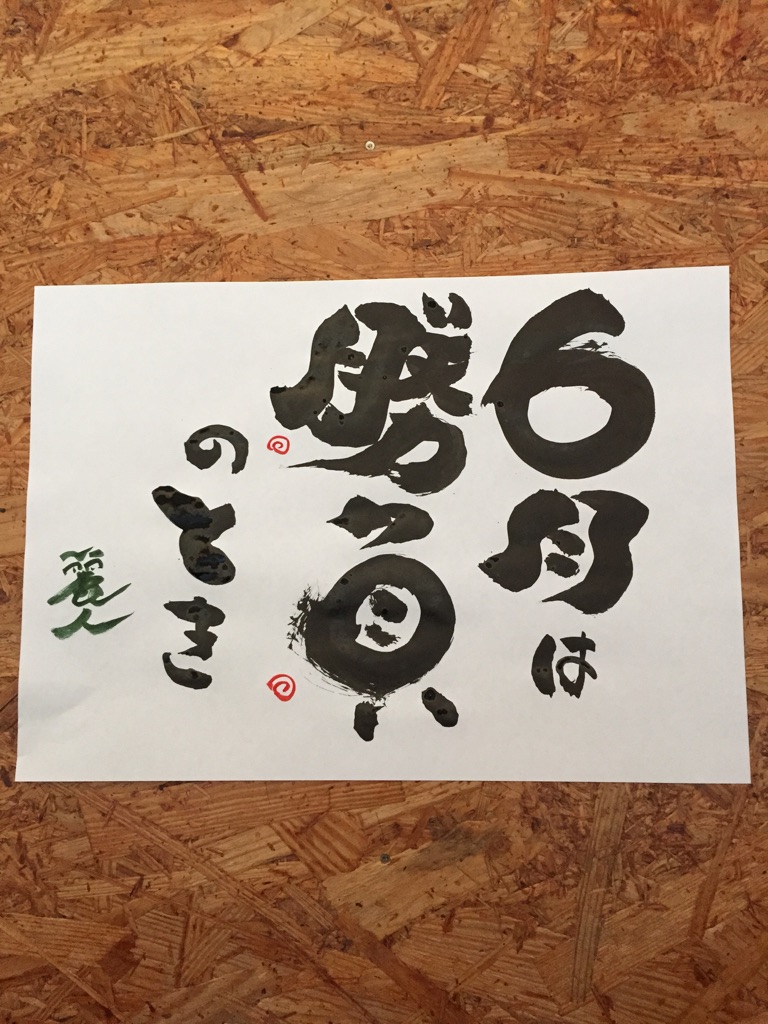 6月は
勝負
のとき
麗人